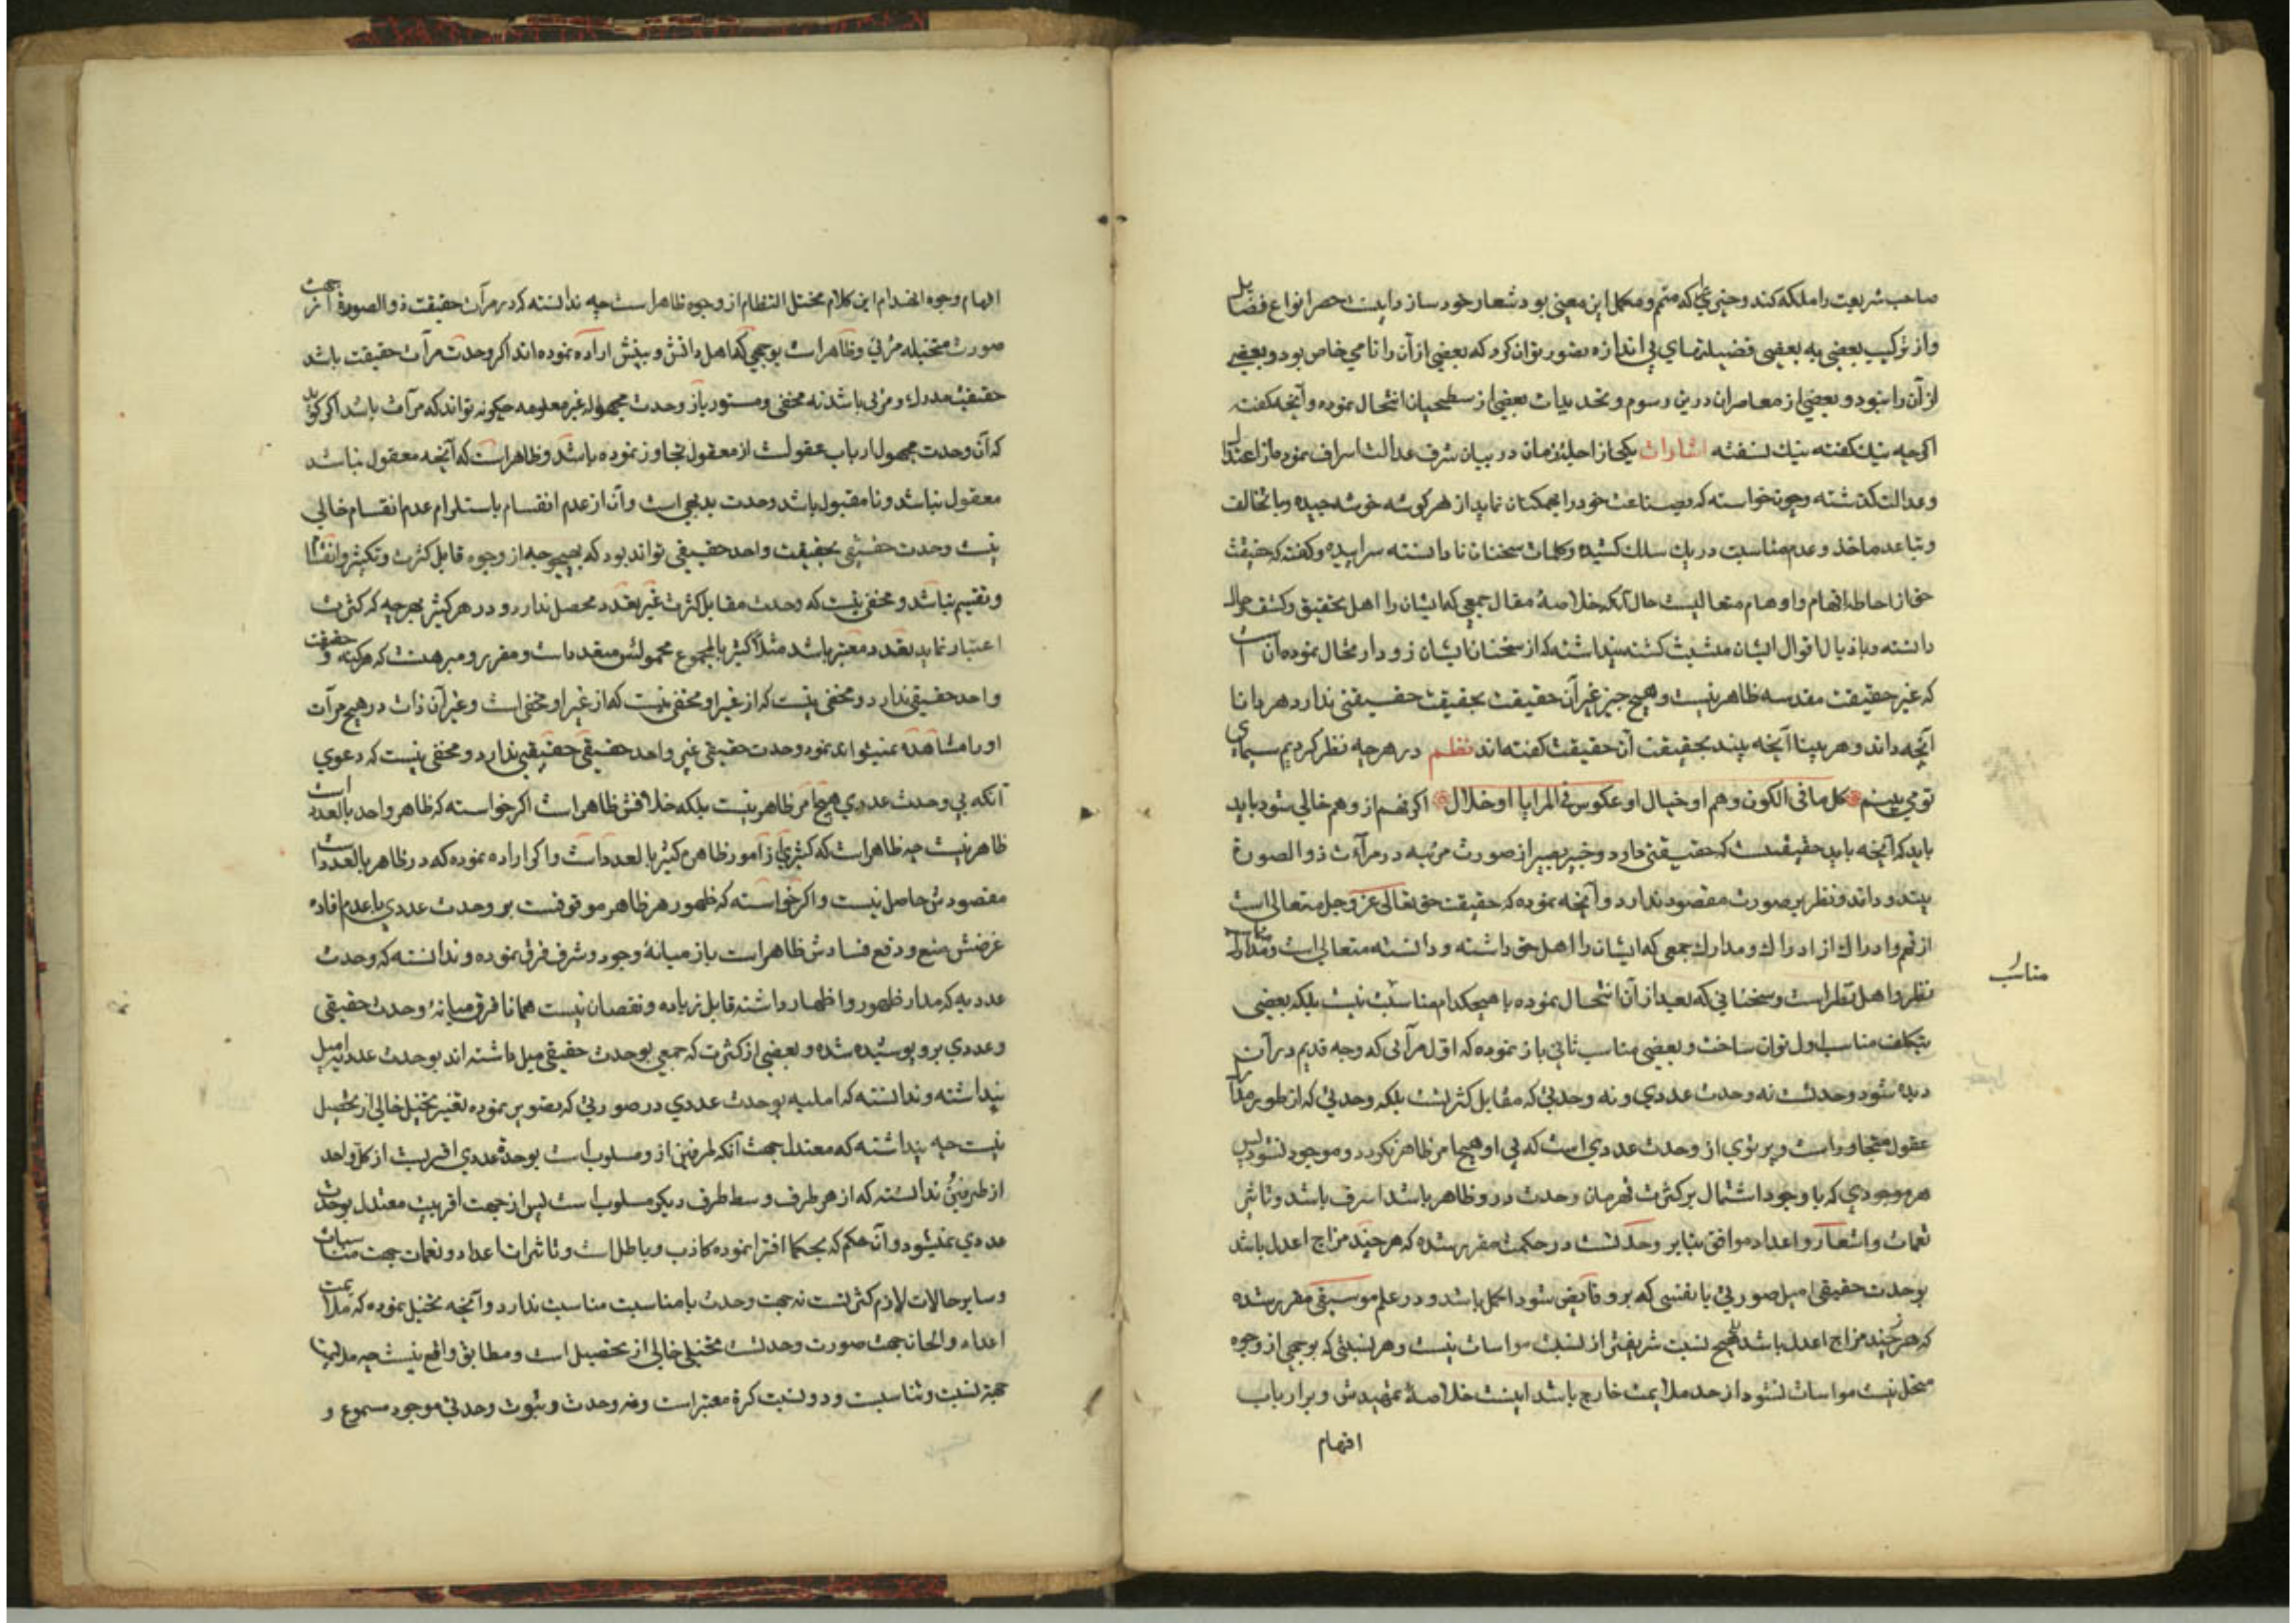 صاحب شریعت را ملکه کند و چیزی که متمم و مکمل این معنی بود شعار خود سازد اینست حصر انواع فضایل
و از ترکیب بعضی به بعضی فضیلتهای بی اندازه تصور توان کرد که بعضی از آن را نامی خاص بود و بعضی
از آن را نبود و بعضی از معاصران درین رسوم و تحدیدات بعضی از سطحیان انتحال نموده و آنچه گفته
اکرچه نیك گفته نیك نسفته اشارات یکی از اجله زمان در بیان شرف عدالت اسراف نموده از اعتدال
و عدالت گذشته و چون خواسته که بضاعت خود را بهمکنان نماید از هر کوشه خوشه چیده و با تخالف
و تباعد ماخذ و عدم مناسبت در یك سلك کشیده و کلمات سخنان نا دانسته سراییده و گفته که حقیقت
حق از احاطه افهام و اوهام متعالیست حال آنکه خلاصهٔ مقال جمعی که ایشان را اهل تحقیق و کشف و حال
دانسته و باذیال اقوال ایشان متشبث کشته پنداشته که از سخنان ایشان زود انتحال نموده آن است
که غیر حقیقت مقدسه ظاهر نیست و هیچ چیز غیر آن حقیقت بحقیقت حقیقتی ندارد هر دانا
آنچه داند و هر بینا آنچه بیند بحقیقت آن حقیقت گفته اند نظم در هرچه نظر کردیم سیمای
تو می بینم کل ما فی الکون وهم او خیال او عکوس فی المرایا او ظلال اکر فهم از وهم خالی شود باید
یابد که آنچه یابد حقیقتست که حقیقتی دارد و خبیر بصیر از صورت مرئیه در مرآت ذو الصورة
بیند و داند و نظر بر صورت مقصود ندارد و آنچه نموده که حقیقت حق تعالی عز و جل متعالی است
از فهم و ادراك از ادراك و مدارك جمعی که ایشان را اهل حق داشته و دانسته متعالی است و مناسب
نظر و اهل نظر است و سخنانی که بعد از آن انتحال نموده با هیچکدام مناسب نیست بلکه بعضی
مناسب
بتکلف مناسب اول توان ساخت و بعضی مناسب ثانی باز نموده که اول مرآتی که وجه قدیم در آن
دیده شود وحدتست نه وحدت عددی و نه وحدتی که مقابل کثرتست بلکه وحدتی که از طور مدارك
عقول متجاوز است و پرتوی از وحدت عددی است که بی او هیچ امر ظاهر نکردد و موجود نشود پس
هر موجودی که با وجود اشتمال بر کثرت قهرمان وحدت در و ظاهر باشد اشرف باشد و تاثیر
نغمات و اشعار و اعداد موافق بنابر وحدتست در حکمت مقرر شده که هر چند مزاج اعدل باشد
بوحدت حقیقی امیل صورتی یا نفسی که برو فایض شود اکمل باشد و در علم موسیقی مقرر شده
که هر چند مزاج اعدل باشد هیچ نسبت شریفتر از نسبت مواسات نیست و هر نسبتی که بوجهی از وجوه
منحل نسبت مواسات نشود از حد ملایمت خارج باشد اینست خلاصهٔ تمهیدش و بر ارباب
افهام
افهام وجوه انضدام این کلام مختل النظام از وجوه ظاهر است چه ندانسته که در مرآت حقیقت ذو الصورة از جهت
صورت متخیله مرئی و ظاهر است بوجهی که اهل دانش و بینش اراده نموده اند اکر وحدت مرآت حقیقت باشد
حقیقت مدرك و مرئی باشد نه مخفی و مستور باز وحدت مجهوله غیر معلومه چکونه تواند که مرآت باشد اکر کوید
که آن وحدت مجهول ارباب عقولست از معقول تجاوز نموده باشد و ظاهر است که آنچه معقول نباشد
معقول نباشد و نا مقبول باشد وحدت بدیهی است و آن از عدم انقسام باستلزام عدم انقسام خالی
نیست وحدت حقیقی بحقیقت واحد حقیقی تواند بود که بهیچ وجه از وجوه قابل کثرت و تکثیر و انقسام
و تقسیم نباشد و مخفی نیست که وحدت مقابل کثرت غیر تعدد محصل ندارد و در هر کثیر بهرچه که کثرت
اعتبار نماید تعدد معتبر باشد مثلا کثیر بالمجموع محمولش متعدد است و مقرر و مبرهنست که هر کنه و حقیقت
واحد حقیقی ندارد و مخفی نیست که از غیر او مخفی نیست که از غیر او مخفی است و غیر آن ذات در هیچ مرآت
او را مشاهده نمیتواند نمود وحدت حقیقی غیر واحد حقیقی حقیقی ندارد و مخفی نیست که دعوی
آنکه بی وحدت عددی هیچ امر ظاهر نیست بلکه خلافش ظاهر است اکر خواسته که ظاهر واحد بالعدد است
ظاهر نیست چه ظاهر است که کثیری از امور ظاهره کثیر بالعدد است و اکر اراده نموده که در ظاهر بالعدد است
مقصودش حاصل نیست و اکر خواسته که ظهور هر ظاهر موقوفست بر وحدت عددی با عدم افاده
غرضش منع و دفع فسادش ظاهر است باز میانهٔ وجود و شرف فرق نموده و ندانسته که وحدت
عددیه که مدار ظهور و اظهار داشته قابل زیاده و نقصان نیست همانا فرق میانهٔ وحدت حقیقی
و عددی برو پوشیده شده و بعضی از کثرت که جمعی بوحدت حقیقی میل داشته اند بوحدت عددیه امیل
پنداشته و ندانسته که املیه بوحدت عددی در صورتی که تصویر نموده تغییر تخیل خالی از تحصیل
نیست چه پنداشته که معتدل جهت آنکه طرفین از و مسلوب است بوحدة عددی اقربست از کل واحد
از طرفین ندانسته که از هر طرف و سط طرف دیکر مسلوب است پس از جهت اقربیت معتدل بوحدت
عددی نمیشود و آن حکم که بحکما افترا نموده کاذب و باطل است و تاثیرات اعداد و نغمات جهت مناسبات
و سایر حالات لازم کثرتست نه جهت وحدت با مناسبت مناسبت ندارد و آنچه تخیل نموده که ملایمت
اعداد و الحان جهت صورت وحدتست تخیلی خالی از تحصیل است و مطابق واقع نیست چه ملایمت
جهة نسبت و تناسبست و در نسبت کرة معتبر است و نه وحدت و ثبوت وحدتی موجود مسموع و